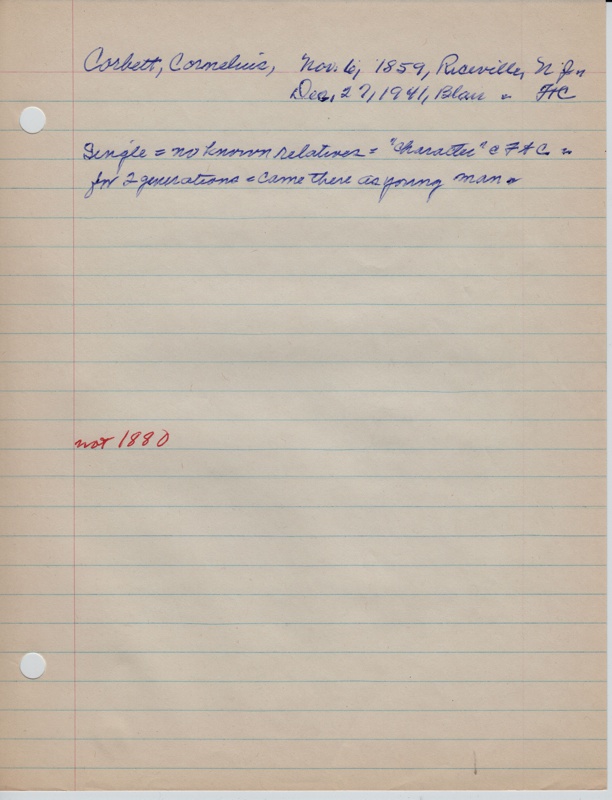 Corbett, Cornelius, Nov. 6, 1859, Riceville, N
Dec, 27, 1941, Blair
Single = no known relatives = "character" @ F
for 2 generations = came there as young man
not 1880